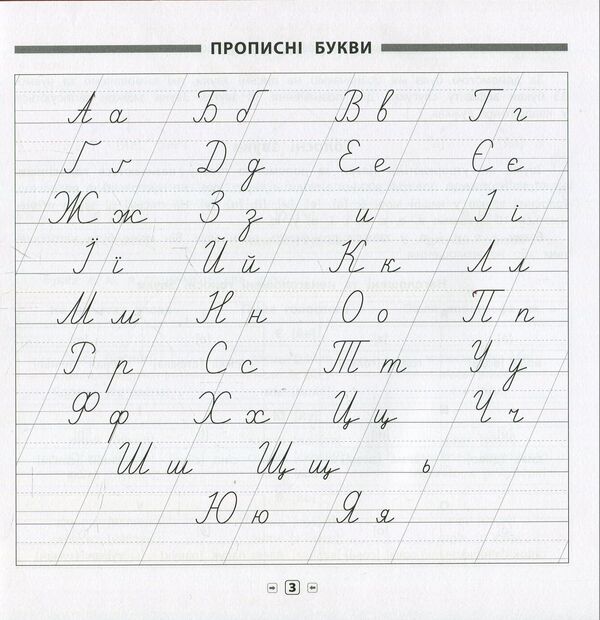 ПРОПИСНІ БУКВИ
А а Б б В в Г г
Ґ ґ Д д Е е Є є
Ж ж З з и І і
Ї ї Й й К к Л л
М м Н н О о П п
Р р С с Т т У у
Ф ф Х х Ц ц Ч ч
Ш ш Щ щ ь
Ю ю Я я
3